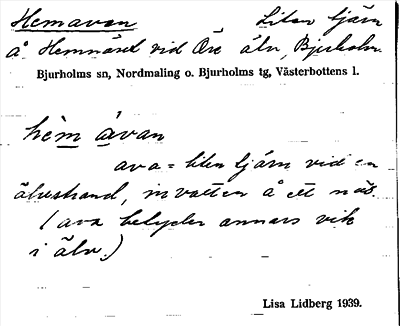 Hemavan Liten tjärn
å Hemnäset vid Öre älv, Bjurholm.
Bjurholms sn, Nordmaling o. Bjurholms tg, Västerbottens l.
hèm ávan
ava = liten tjärn vid en
älvstrand, in vatten å ett näs.
(ava betyder annars vik
i älv.)
Lisa Lidberg 1939.